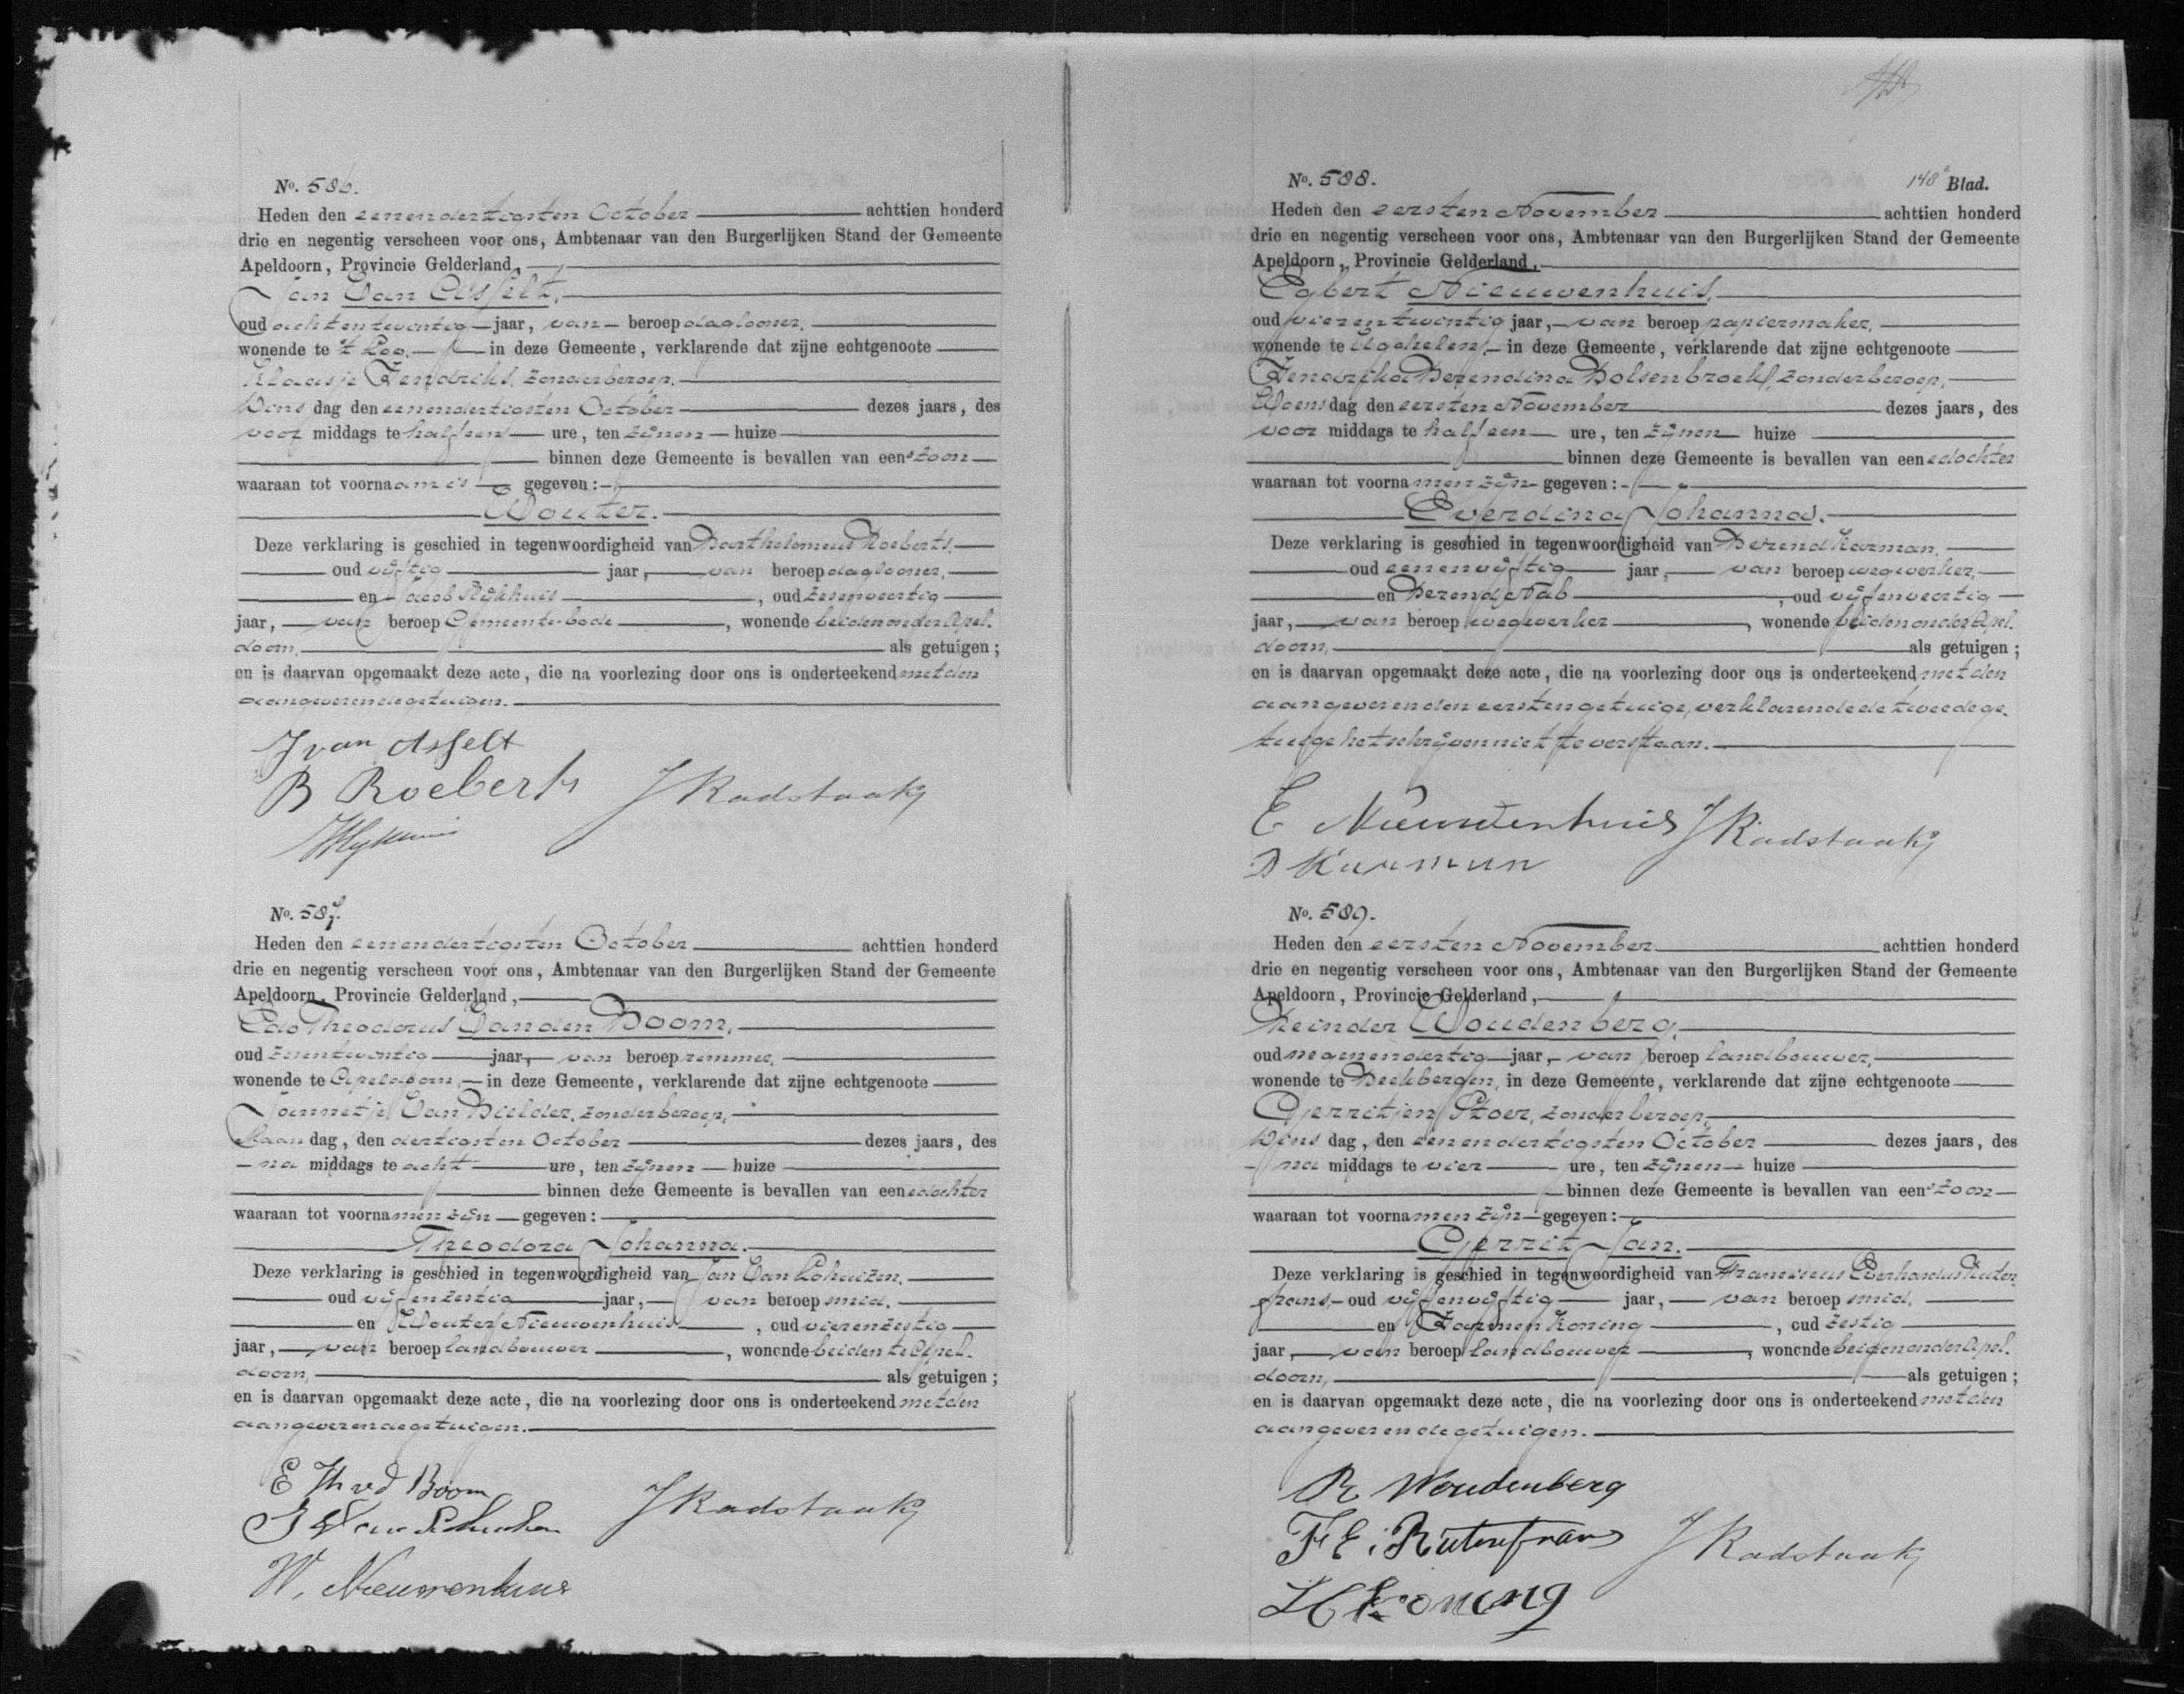 No. 586.
Heden den eenendertigsten October achttien honderd
drie en negentig verscheen voor ons, Ambtenaar van den Burgerlijken Stand der Gemeente
Apeldoorn, Provincie Gelderland,
Jan Van Asselt,
oud achtentwintig jaar, van beroep daglooner,
wonende te 't Loo, in deze Gemeente, verklarende dat zijne echtgenoote
Klaasje Hendriks, zonder beroep,
Dins dag den eenendertigsten October dezes jaars, des
voor middags te half een ure, ten zijnen huize
binnen deze Gemeente is bevallen van een zoon
waaraan tot voornaam is gegeven:
Wouter.
Deze verklaring is geschied in tegenwoordigheid van Bartholomeus Roeberts,
oud vijftig jaar, van beroep daglooner,
en Jacob Rijkhuis, oud zesenveertig
jaar, van beroep Gemeente-bode, wonende beiden onder Apel-
doorn, als getuigen;
en is daarvan opgemaakt deze acte, die na voorlezing door ons is onderteekend met den
aangever en de getuigen.
J van Asselt
B Roeberts JRadstaak
No. 587.
Heden den eenendertigsten October achttien honderd
drie en negentig verscheen voor ons, Ambtenaar van den Burgerlijken Stand der Gemeente
Apeldoorn, Provincie Gelderland,
Edo Theodorus Van den Boom,
oud zesentwintig jaar, van beroep remmer,
wonende te Apeldoorn, in deze Gemeente, verklarende dat zijne echtgenoote
Jannetje Van Bielder, zonder beroep,
Maan dag, den dertigsten October dezes jaars, des
na middags te acht ure, ten zijnen huize
binnen deze Gemeente is bevallen van eene dochter
waaraan tot voornamen zijn gegeven:
Theodora Johanna.
Deze verklaring is geschied in tegenwoordigheid van Jan Van Lohuizen,
oud vijfenzestig jaar, van beroep smid,
en Wouter Nieuwenhuis, oud vierenzestig
jaar, van beroep landbouwer, wonende beiden te Apel-
doorn, als getuigen;
en is daarvan opgemaakt deze acte, die na voorlezing door ons is onderteekend met den
aangever en de getuigen.
E Th v d Boom
J Van Lohuizen JRadstaak
W. Nieuwenhuis
No. 588. 148e Blad.
Heden den eersten November achttien honderd
drie en negentig verscheen voor ons, Ambtenaar van den Burgerlijken Stand der Gemeente
Apeldoorn, Provincie Gelderland,
Egbert Nieuwenhuis,
oud vierentwintig jaar, van beroep papiermaker,
wonende te Ugchelen, in deze Gemeente, verklarende dat zijne echtgenoote
Hendrika Berendina Dolsenbroek, zonder beroep,
Woensdag den eersten November dezes jaars, des
voor middags te half een ure, ten zijnen huize
binnen deze Gemeente is bevallen van eene dochter
waaraan tot voornamen zijn gegeven:
Everdina Johanna.
Deze verklaring is geschied in tegenwoordigheid van Berend Karman,
oud eenenvijftig jaar, van beroep wegwerker,
en Berend Nab, oud vijfenveertig
jaar, van beroep wegwerker, wonende beiden onder Apel-
doorn, als getuigen;
en is daarvan opgemaakt deze acte, die na voorlezing door ons is onderteekend met den
aangever en den eersten getuige, verklarende de tweede ge-
tuige het schrijven niet te verstaan.
E Nieuwenhuis JRadstaak
B Karman
No. 589.
Heden den eersten November achttien honderd
drie en negentig verscheen voor ons, Ambtenaar van den Burgerlijken Stand der Gemeente
Apeldoorn, Provincie Gelderland,
Reinder Woudenberg,
oud negenendertig jaar, van beroep landbouwer,
wonende te Beekbergen, in deze Gemeente, verklarende dat zijne echtgenoote
Gerritjen Stoer, zonder beroep,
Dins dag, den eenendertigsten October dezes jaars, des
na middags te vier ure, ten zijnen huize
binnen deze Gemeente is bevallen van een zoon
waaraan tot voornamen zijn gegeven:
Gerrit Jan.
Deze verklaring is geschied in tegenwoordigheid van Franciscus Everhardus Ruiter-
frans, oud vijfenvijftig jaar, van beroep smid,
en Harmen Koning, oud zestig
jaar, van beroep landbouwer, wonende beiden onder Apel-
doorn, als getuigen;
en is daarvan opgemaakt deze acte, die na voorlezing door ons is onderteekend met den
aangever en de getuigen.
R Woudenberg
F. E. Ruiterfrans JRadstaak
H Koning